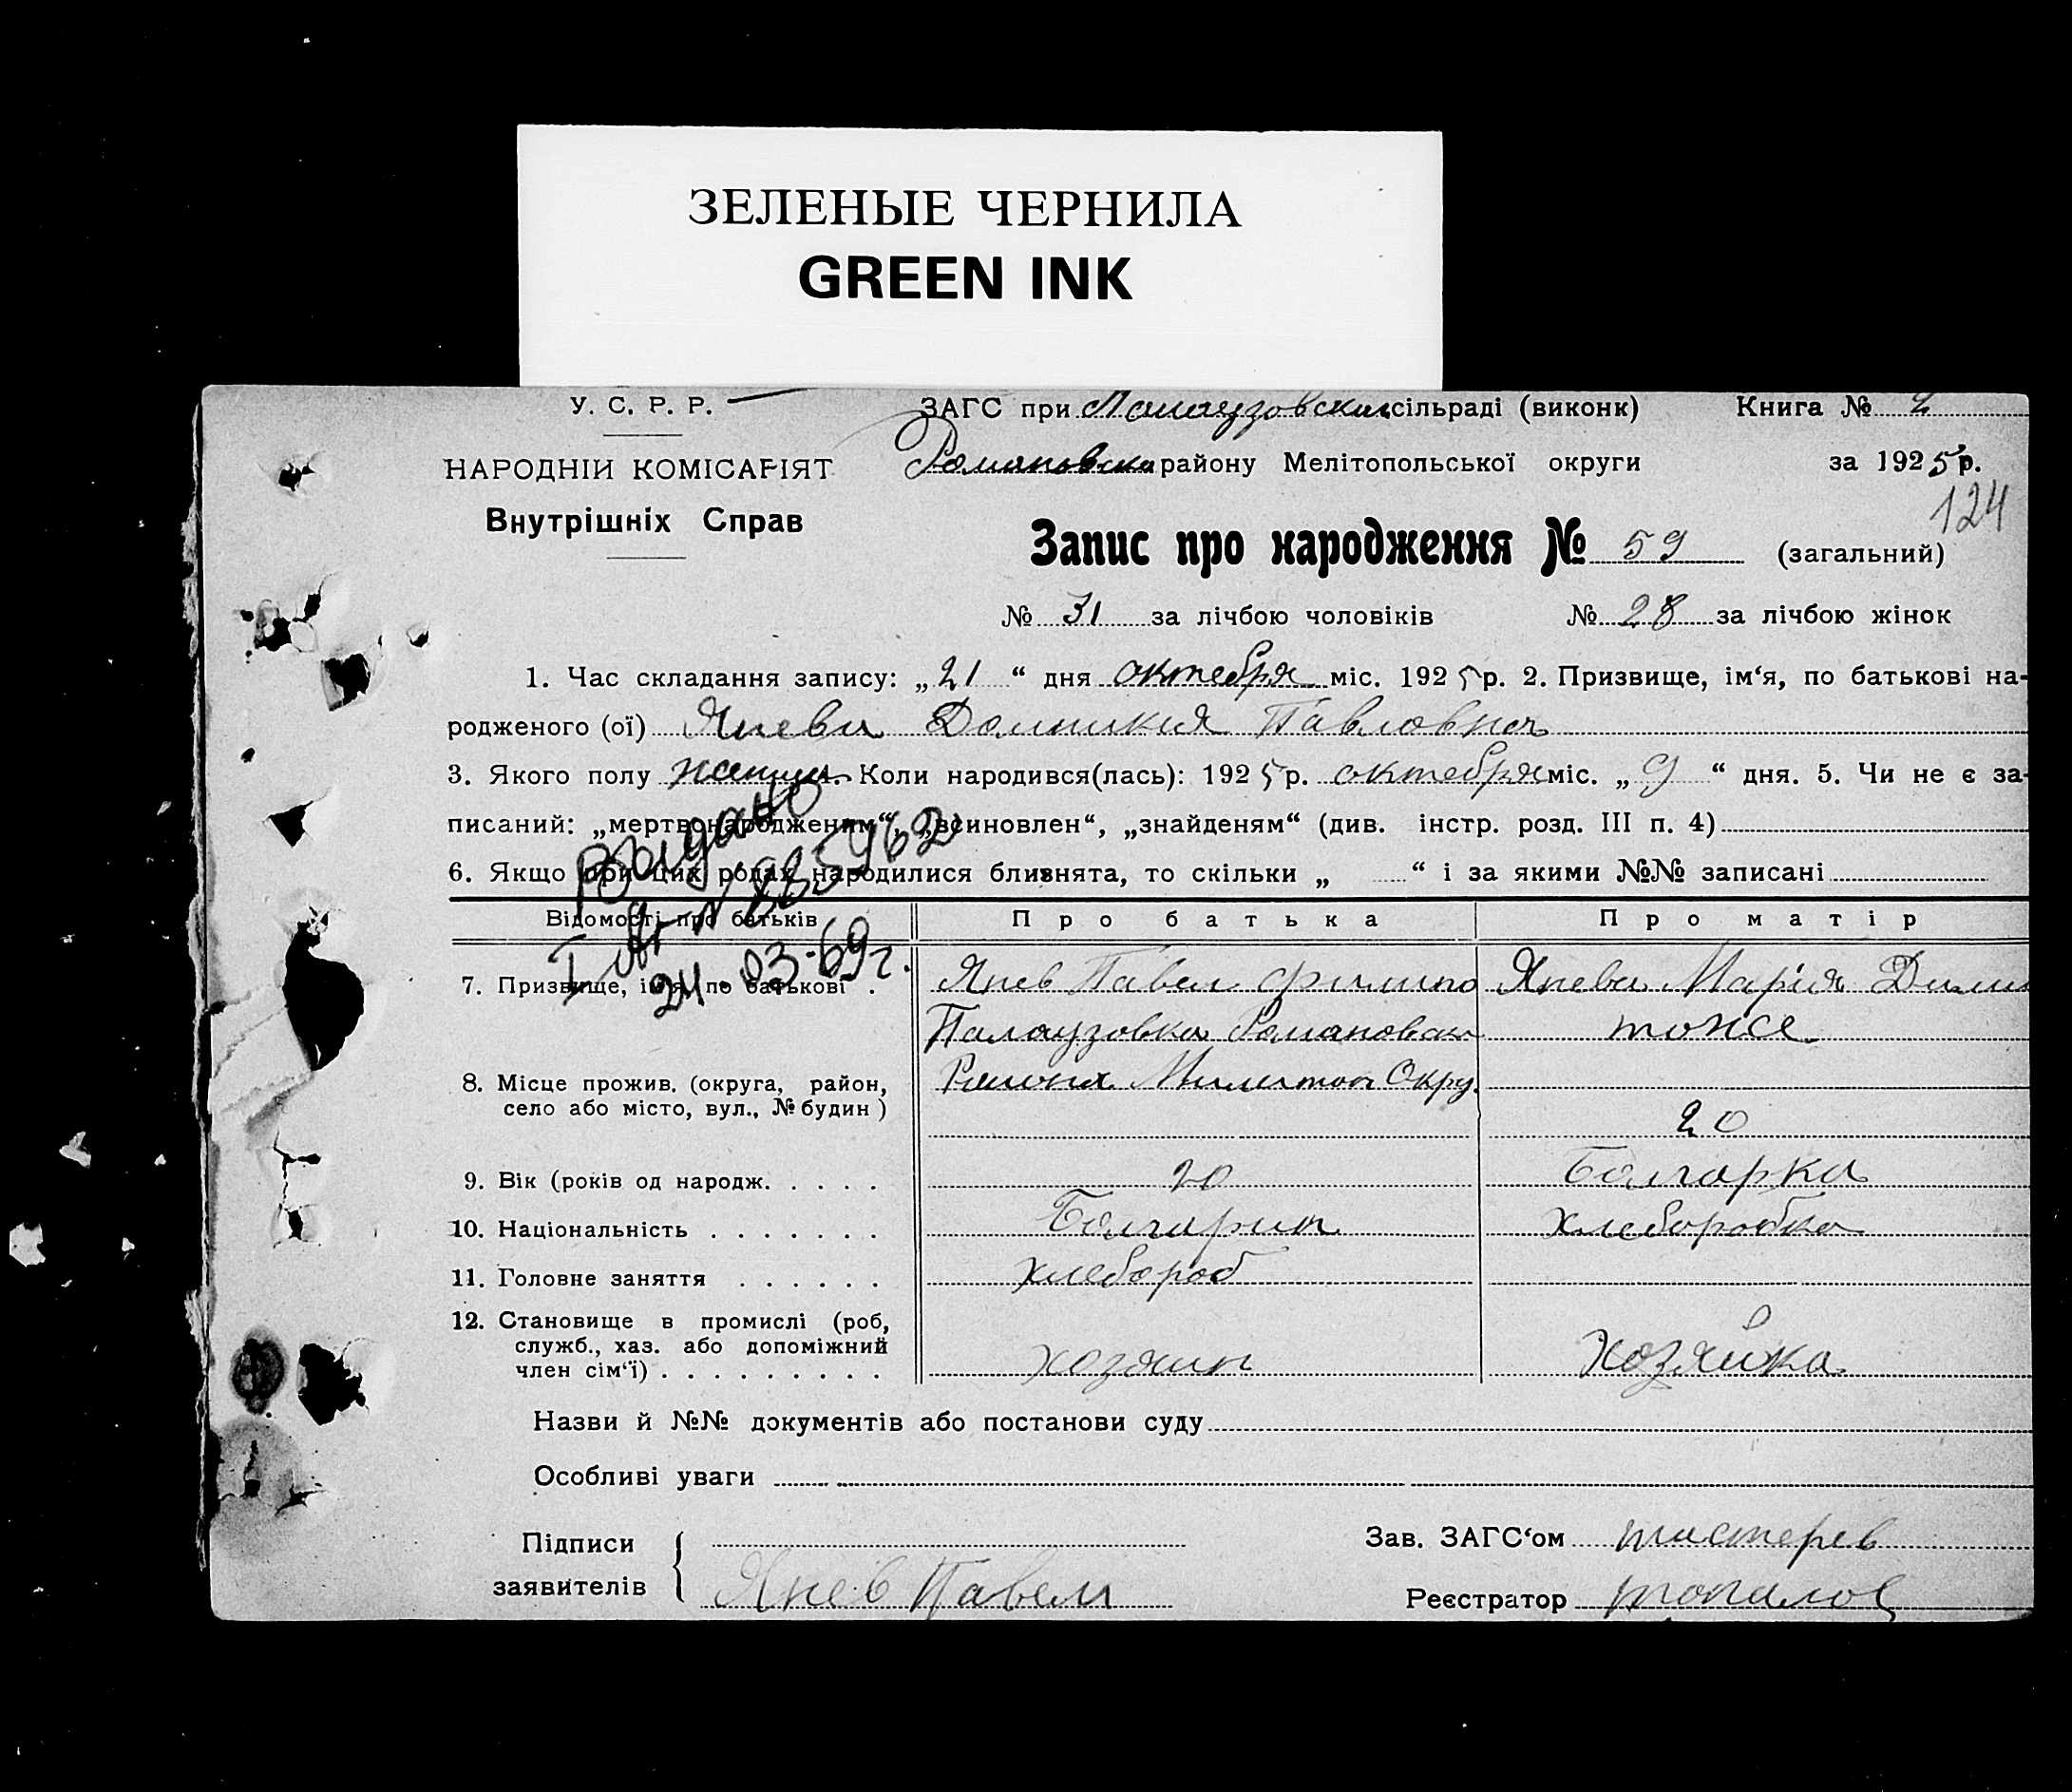 ЗЕЛЕНЫЕ ЧЕРНИЛА
GREEN INK
У. С. Р. Р. ЗАГС при Палаузовский сільраді (виконк) Книга № 2
НАРОДНІЙ КОМІСАРІЯТ Романовска району Мелітопольської округи за 1925 р.
Внутрішніх Справ 124
Запис про народження № 59 (загальний)
№ 31 за лічбою чоловіків № 28 за лічбою жінок
1. Час складання запису: „21“ дня октебря міс. 1925 р. 2. Призвище, ім‘я, по батькові на-
родженого (ої) Янева Домникия Павловна
3. Якого полу Коли народився(лась): 1925 р. октебря міс. „9“ дня. 5. Чи не є за-
писаний: „мертвонародженим“, „всиновлен“, „знайденям“ (див. інстр. розд. III п. 4)
6. Якщо при цих родах народилися близнята, то скільки „ “ і за якими №№ записані
Видано
24.03-69г.
Відомості про батьків Про батька Про матір
7. Призвище, ім‘я, по батькові . Янев Павел Филипо Янева Марія Дими
Палаузовка Романовск тоже
8. Місце прожив. (округа, район, Району Милитоп Окру.
село або місто, вул., № будин)
20
9. Вік (років од народж. . . . . 20 Болгарка
10. Національність . . . . . . . Болгарин Хлеборобка
11. Головне заняття . . . . . . хлебороб
12. Становище в промислі (роб,
служб., хаз. або допоміжний
член сім‘ї) . . . . . . . . . хозяин Хозяйка
Назви й №№ документів або постанови суду
Особливі уваги
Підписи Зав. ЗАГС‘ом
заявителів Янев Павел Реєстратор топалов